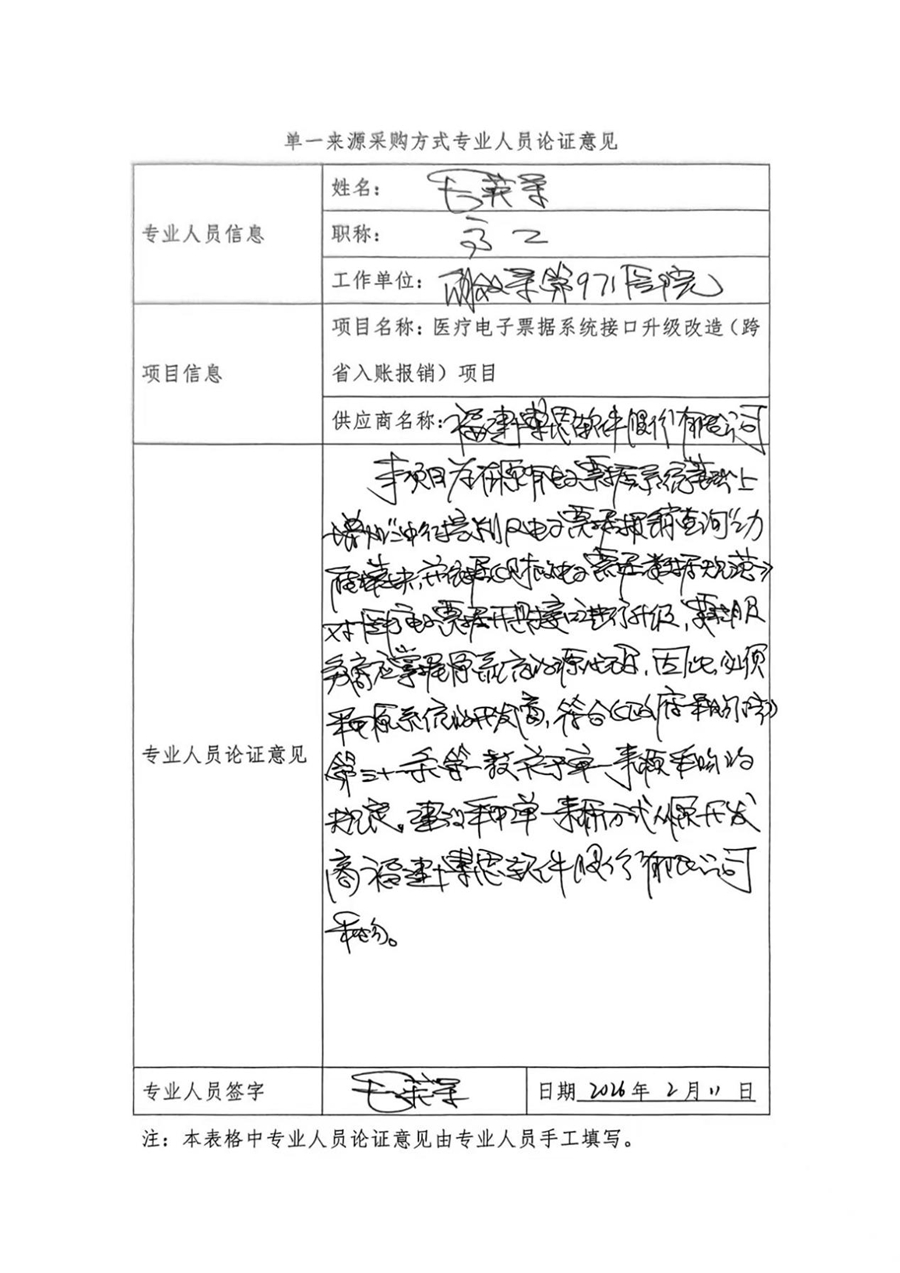 单一来源采购方式专业人员论证意见
专业人员信息
姓名：
职称： 高工
工作单位： 第971医院
项目信息
项目名称：医疗电子票据系统接口升级改造（跨
省入账报销）项目
供应商名称：福建博思软件股份有限公司
专业人员论证意见
本项目为在原有电子票据系统基础上
增加 电子票据报销查询"功
能模块，并依据《财政电子票据数据规范》
对医疗电子票据开具接口进行升级，要求服
务商应掌握原系统的源代码，因此，必须
采用原系统的开发商，符合《政府采购法》
第三十一条第一款关于单一来源采购的
规定。建议采用单一来源方式从原开发
商福建博思软件股份有限公司
采购。
专业人员签字
日期 2026年 2月 11日
注：本表格中专业人员论证意见由专业人员手工填写。